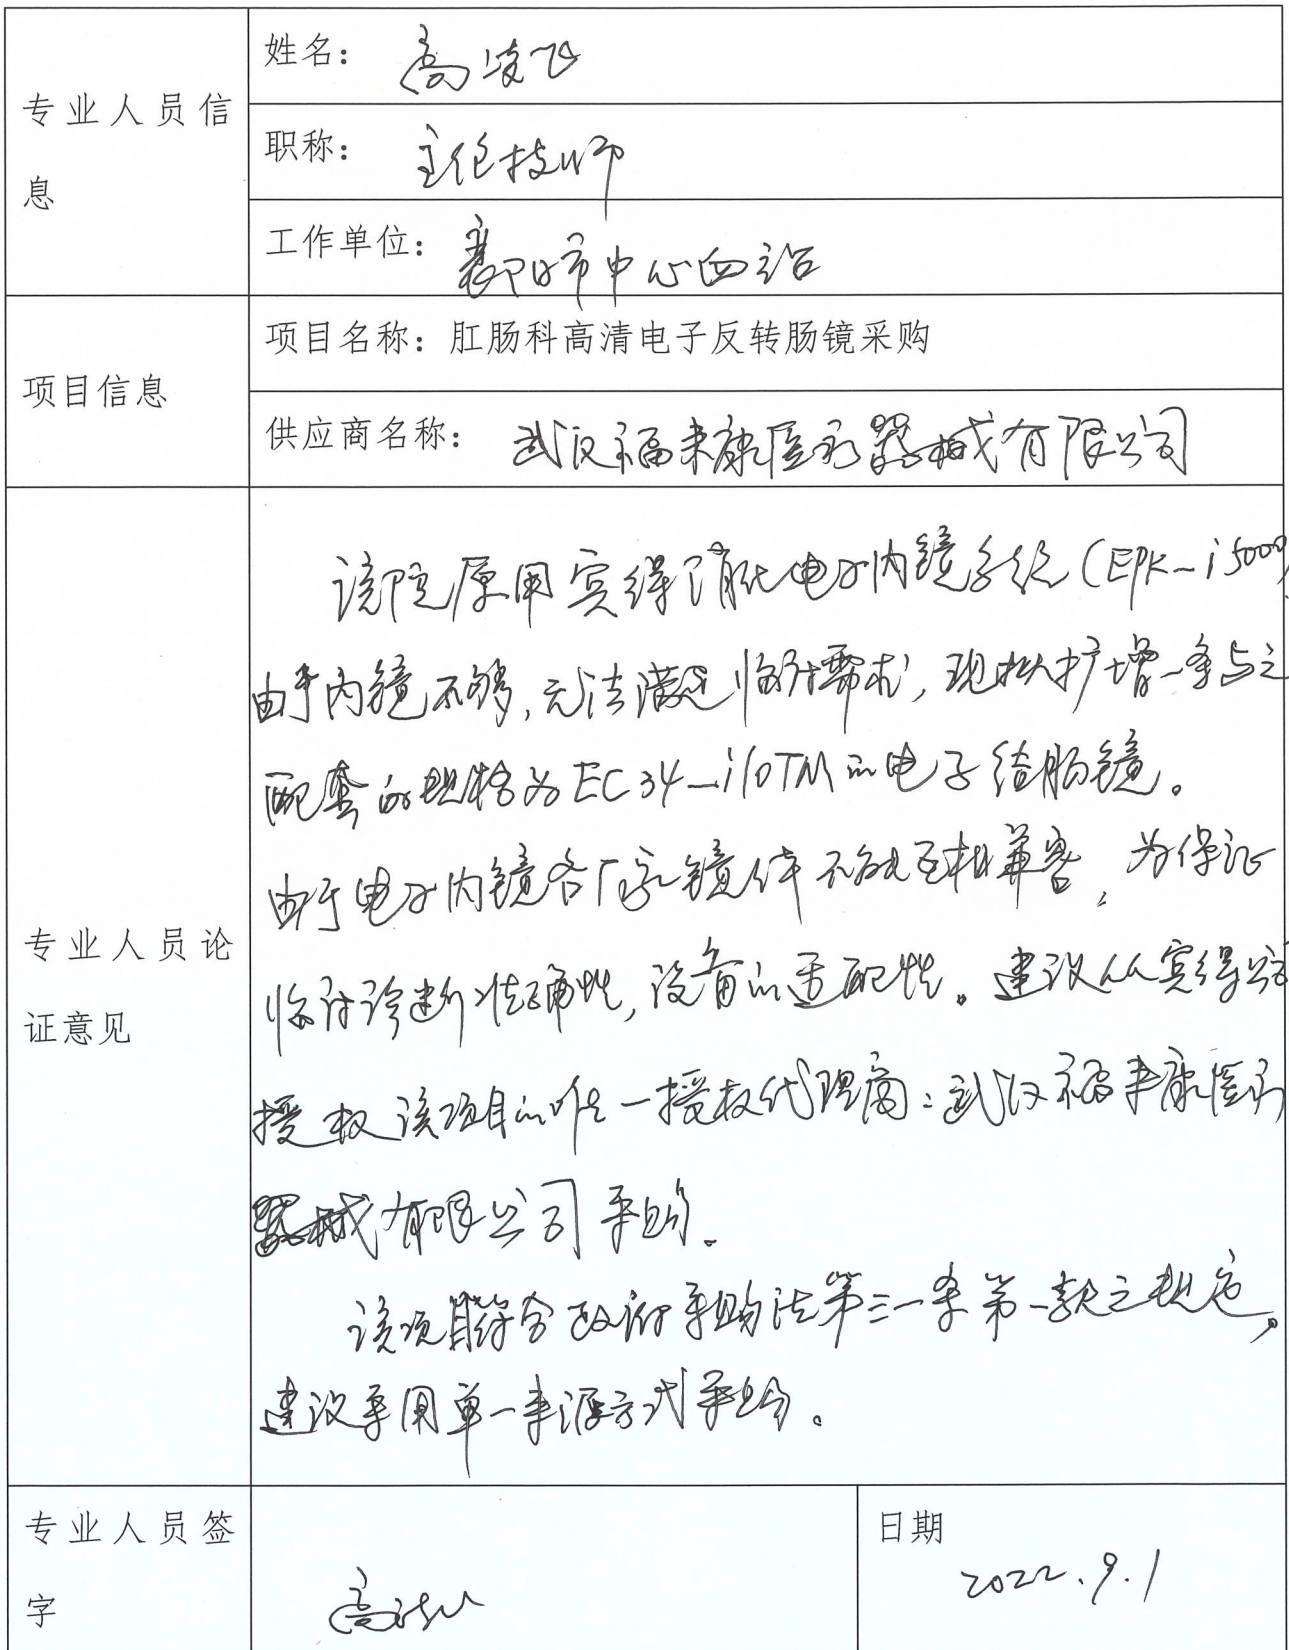 专业人员信
息
姓名：高凌飞
职称：主任技师
工作单位：襄阳市中心血站
项目信息
项目名称：肛肠科高清电子反转肠镜采购
供应商名称：武汉福来康医疗器械有限公司
专业人员论
证意见
该院原用宾得消化电子内镜系统（EPK-i5000）
由于内镜不够，无法满足临床需求，现拟扩增一条与之
配套的规格为EC34-i10TM的电子结肠镜。
由于电子内镜各厂家镜体不能互相兼容，为保证
临床诊断准确性，设备的适配性。建议从宾得公司
授权该项目的唯一授权代理商：武汉福来康医疗
器械有限公司采购。
该项目符合政府采购法第三一条第一款之规定，
建议采用单一来源方式采购。
专业人员签
字
高凌飞
日期
2022.9.1